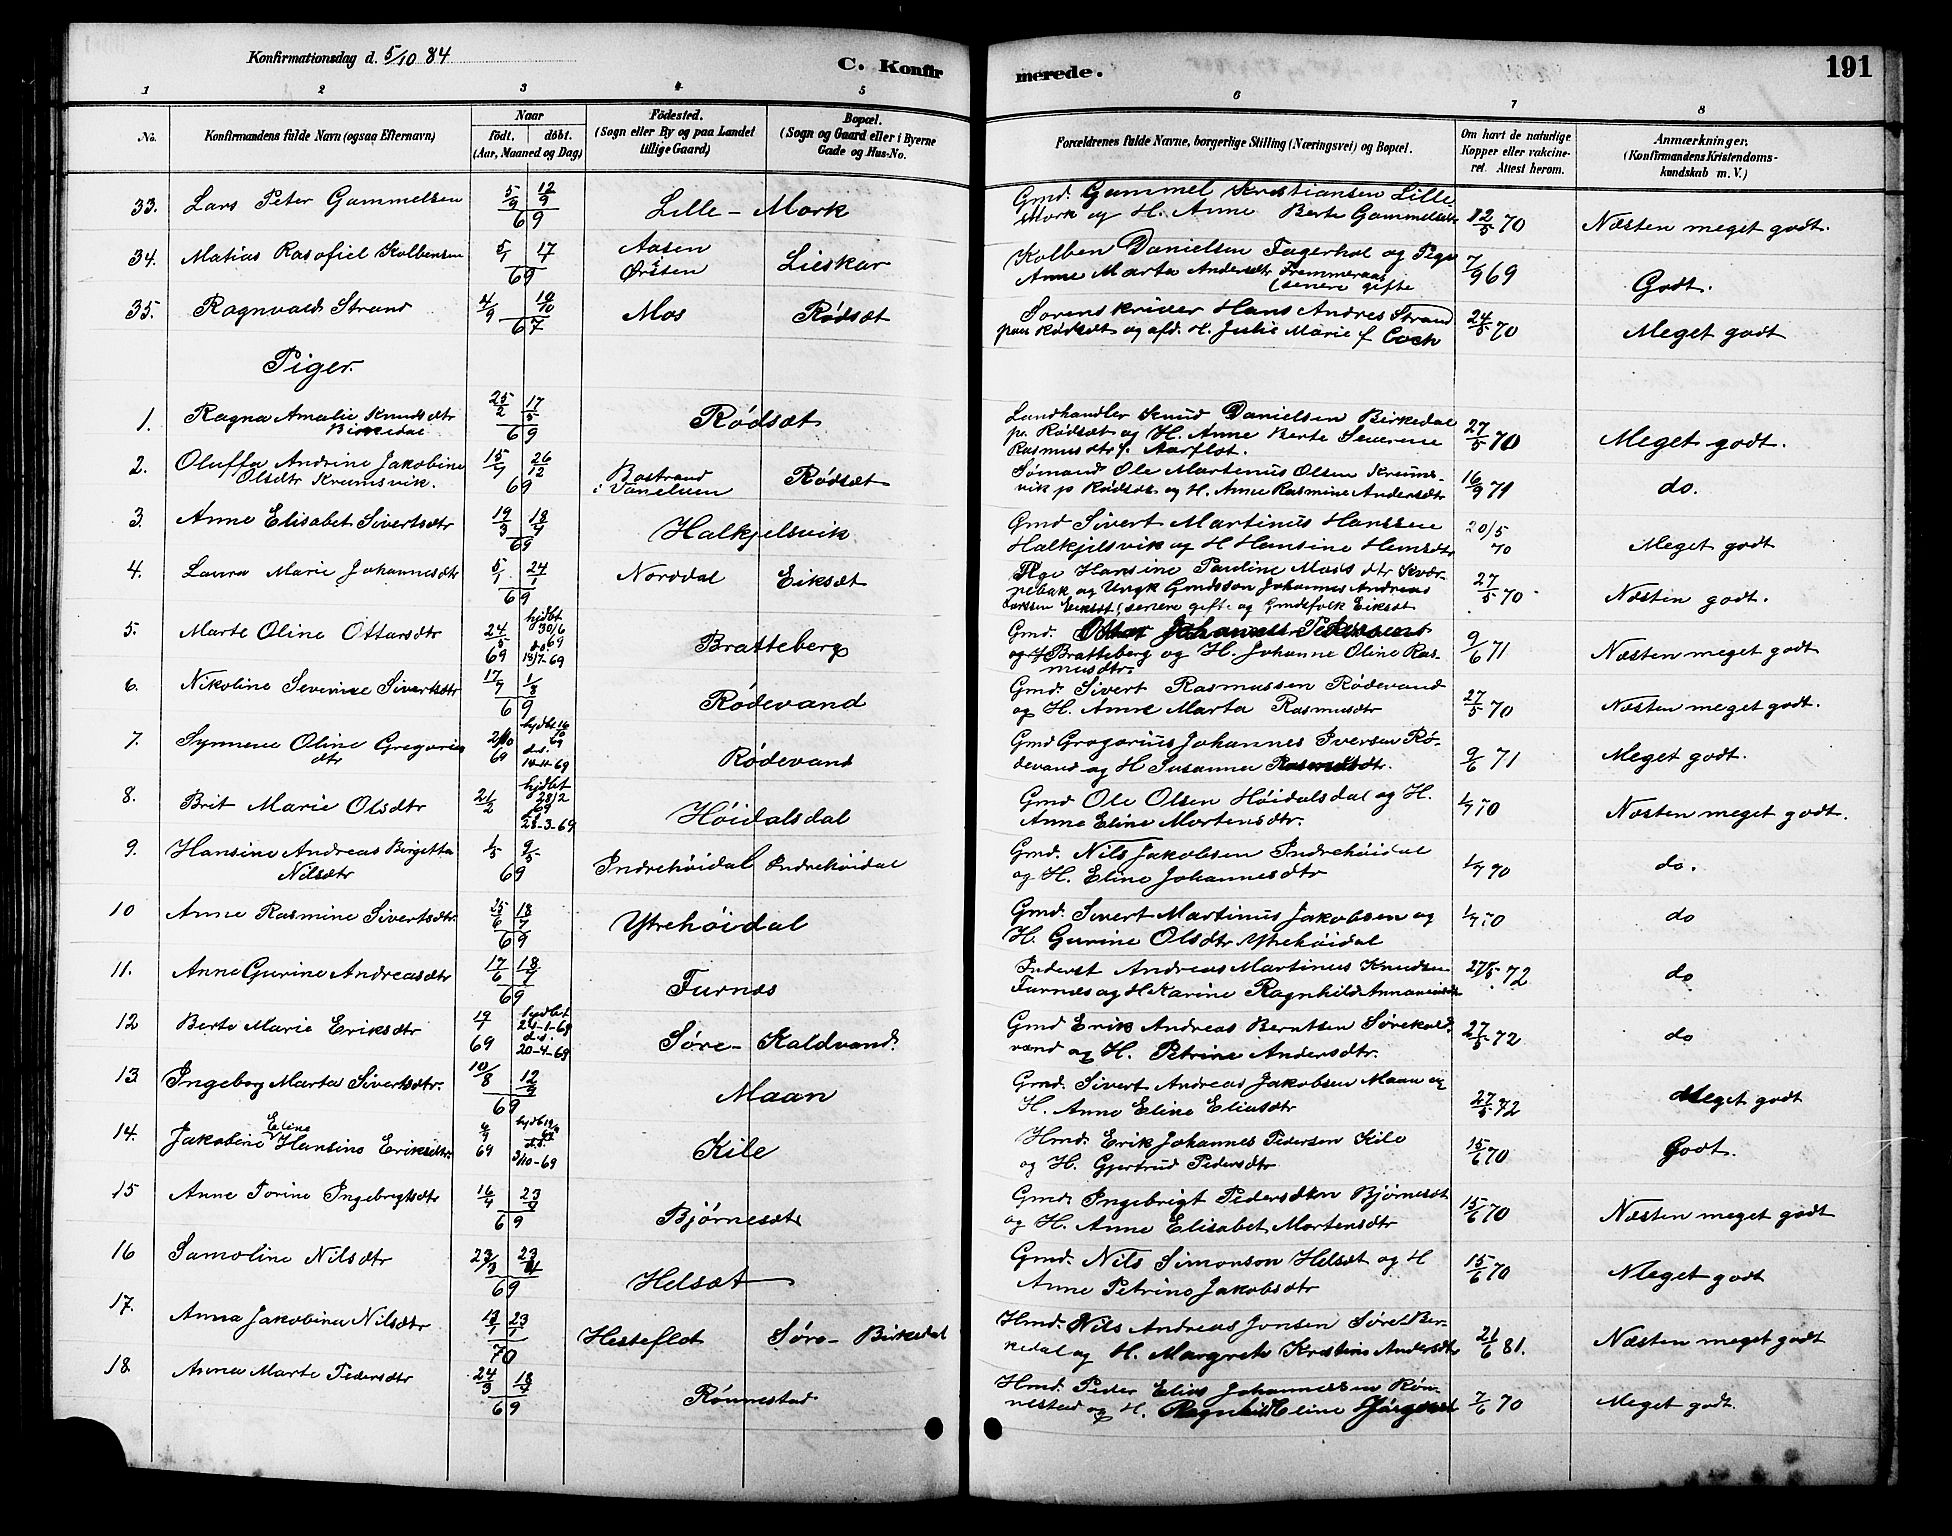 Konfirmationsdag d. 5/10 84
C. Konfirmerede.
191
1 2 3 4 5 6 7 8
No.
Konfirmandens fulde Navn (ogsaa Efternavn)
Naar
födt. döbt.
(Aar, Maaned og Dag)
Födested.
(Sogn eller By og paa Landet
tillige Gaard)
Bopæl.
(Sogn og Gaard eller i Byerne
Gade og Hus-No.
Forældrenes fulde Navne, borgerlige Stilling (Næringsvei) og Bopæl.
Om havt de naturlige
Kopper eller vakcine-
ret. Attest herom.
Anmærkninger.
(Konfirmandens Kristendoms-
kundskab m. V.)
33. Lars Peter Gammelsen 5/9 12/9 69 Lille-Mork Gmd. Gammel Kristiansen Lille
Mork og H. Anne Berte Gammelsdtr 12/5 70 Næsten meget godt.
34. Matias Rasofiel Kolbensen 5/1 17/4 69 Aasen
Ørsten Lieskar Kolben Danielsen Fagerhol og Pige
Anne Marta Andersdtr Fremmeraas
(senere gifte 7/9 69 Godt.
35. Ragnvald Strand 4/9 10/10 67 Mos Rødsæt Sorenskriver Hans Andres Strand
paa Rødsæt og afd. H. Julie Marie f Coch 24/5 70 Meget godt
Piger.
1. Ragna Amalie Knudsdtr
Birkedal 25/2 17/5 69 Rødsæt Landhandler Knud Danielsen Birkedal
p. Rødsæt og H. Anne Berte Severine
Rasmusdtr f. Aarflot. 27/5 70 Meget godt.
2. Oluffa Andrine Jakobine
Olsdtr Krumsvik. 26/12 69 Bostrand
i Vanelven Rødsæt Sømand Ole Martinus Olsen Krums-
vik p Rødsæt og H. Anne Rasmine Andersdtr 16/9 71 do.
3. Anne Elisabet Sivertsdtr 19/3 18/4 69 Halkjelsvik Gmd Sivert Martinus Hanssen
Halkjelsvik og H Hansine Hansdtr 20/5 70 Meget godt
4. Laura Marie Johannesdtr 5/1 24/1 69 Norddal Eiksæt Pge Hansine Pauline Maasdtr Kvær-
nebak og Ungk Gmdssøn Johannes Andreas
Larssen Eiksæt (senere gifte og Gmdefolk Eiksæt 27/5 70 Næsten godt.
5. Marte Oline Ottarsdtr 24/5 69 hjdbt
30/6 69
18/7-69 Bratteberg Gmd. Ottar Johannes Pedersen
Bratteberg og H. Johanne Oline Ras-
musdtr. 9/6 71 Næsten meget godt
6. Nikoline Severine Sivertsdtr 17/7 1/8 69 Rødevand Gmd. Sivert Rasmussen Rødevand
og H. Anne Marta Rasmusdtr 27/5 70 Næsten meget godt.
7. Synneve Oline Gregorius
dtr 2/10 69 hjdbt 16/10 69
d.s.
14-11-69 Rødevand Gmd Gregorius Johannes Iversen Rø-
devand og H Susanne Rasmusdtr. 9/6 71 Meget godt.
8. Brit Marie Olsdtr 21/2 hjdbt
28/2
69
28-3-69 Høidalsdal Gmd Ole Olsen Høidalsdal og H.
Anne Eline Mortensdtr. 1/7 70 Næsten meget godt.
9. Hansine Andreas Bergetta
Nilsdtr 1/5 9/5 69 Indrehöidal Indrehöidal Gmd. Nils Jakobsen Indrehöidal
og H. Eline Johannesdtr 1/7 70 do.
10 Anne Rasmine Sivertsdtr. 25/6 18/7 69 Ytrehöidal Gmd. Sivert Martinus Jakobsen og
H. Gurine Olsdtr Ytrehöidal 1/7 70 do
11. Anne Gurine Andreasdtr 17/6 18/7 69 Furnæs Inderst Andreas Martinus Knudsen
Furnæs og H Karine Ragnhild 27/5 72 do
12 Berte Marie Eriksdtr 19/1 69 hjdbt
24-1-69
d.s.
20-4-69 Søre-Kaldvand. Gmd Erik Andreas Berntsen Sørekald-
vand og H. Petrine Andersdtr. 27/5 72 do
13 Ingeborg Marta Sivertsdtr. 10/8 12/9 69 Maan Gmd. Sivert Andreas Jakobsen Maan og
H. Anne Eline Eliasdtr 27/5 72 Meget godt
14. Jakobine Eline Hansine Eriksdtr. 69 d.s.
3/10-69 Kile Hmd. Erik Johannes Pedersen Kile
og H. Gjertrud Pedersdtr 15/6 70 Godt.
15 Anne Torine Ingebrigtsdtr 16/4 69 Bjørnesæt Gmd. Ingebrigt Pedersen Bjørnesæt
og H. Anne Elisabet Mortensdtr 15/6 70 Næsten meget godt
16 Samoline Nilsdtr 23/3 23/4 69 Helsæt Gmd. Nils Simonson Helsæt og H
Anne Petrine Jakobsdtr 15/6 70 Meget godt
17. Anna Jakobina Nilsdtr 13/1 23/1 70 Hesteflot Søre-Birkedal Hmd. Nils Andreas Jonsen Søre Bir-
kedal og H. Margrete Kristine Andersdtr 21/6 81. Næsten meget godt
18. Anna Marte Pedersdtr 24/3 18/4 69 Rönnestad Hmd. Peder Elias Johannessen Røn-
nestad og H. Ragnhild Eline 7/6 70 Meget godt.